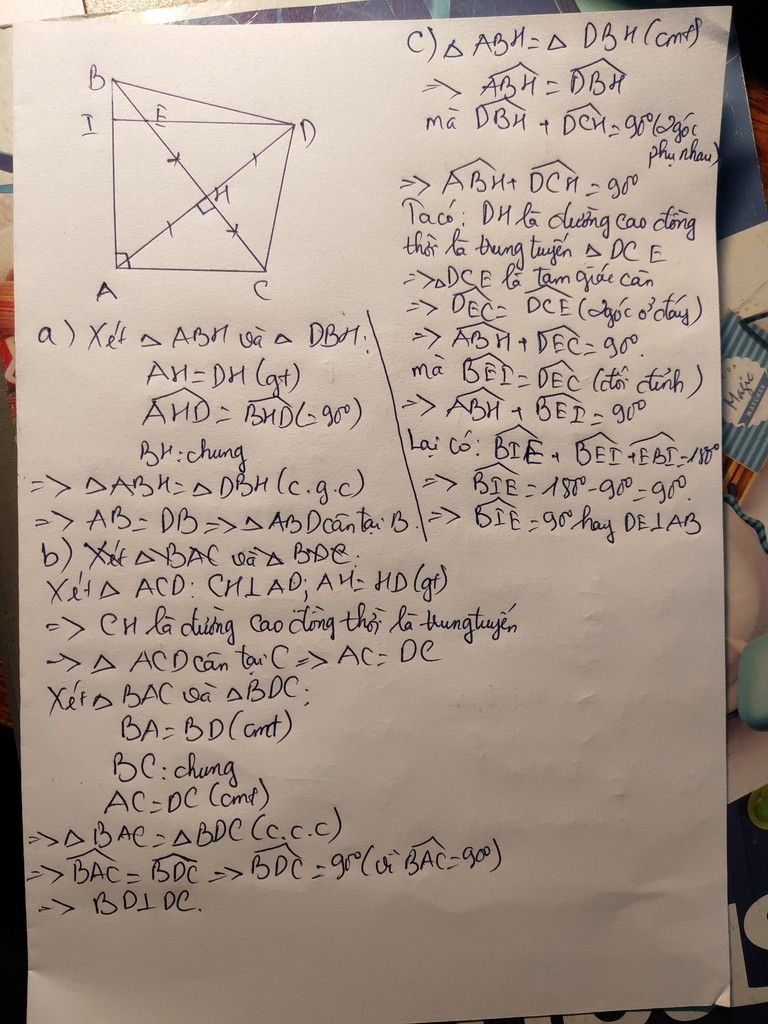 B
I
E
D
H
A
C
a) Xét △ ABH và △ DBH:
AH = DH (gt)
\widehat{AHD} = \widehat{BHD} (=90°)
BH: chung
=> △ ABH = △ DBH (c.g.c)
=> AB = DB => △ ABD cân tại B.
b) Xét △ BAC và △ BDC:
Xét △ ACD: CH⊥AD; AH = HD (gt)
=> CH là đường cao đồng thời là trung tuyến
=> △ ACD cân tại C => AC = DC
Xét △ BAC và △BDC:
BA = BD (cmt)
BC: chung
AC = DC (cmt)
=> △ BAC = △BDC (c.c.c)
=> \widehat{BAC} = \widehat{BDC} => \widehat{BDC} = 90° (vì \widehat{BAC} = 90°)
=> BD⊥DC.
C) △ ABH = △ DBH (cmt)
=> \widehat{ABH} = \widehat{DBH}
mà \widehat{DBH} + \widehat{DCH} = 90° (2 góc
phụ nhau)
=> \widehat{ABH} + \widehat{DCH} = 90°
Ta có: DH là đường cao đồng
thời là trung tuyến △ DCE
=> △DCE là tam giác cân
=> \widehat{DEC} = \widehat{DCE} (2 góc ở đáy)
=> \widehat{ABH} + \widehat{DEC} = 90°.
mà \widehat{BEI} = \widehat{DEC} (đối đỉnh)
=> \widehat{ABH} + \widehat{BEI} = 90°
Lại có: \widehat{BIE} + \widehat{BEI} + \widehat{EBI} = 180°
=> \widehat{BIE} = 180° - 90° = 90°.
=> \widehat{BIE} = 90° hay DE⊥AB
Magic